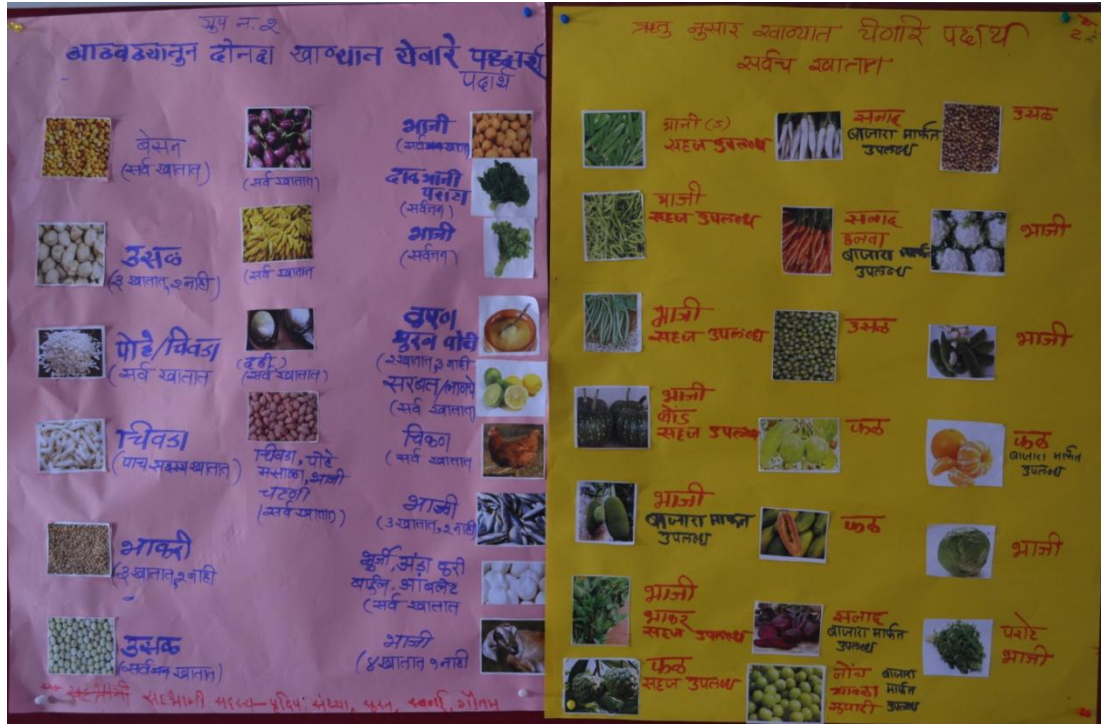 ग्रुप न. २
आठवड्यातुन दोनदा खाण्यात येणारे
पदार्थ
बेसन
(सर्व खातात)
उसळ
(३ खातात, २ नाही)
पोहे/चिवडा
(सर्व खातात
चिवडा
(पाच सदस्य खातात)
भाकरी
(३ खातात, २ नाही
उसळ
(सर्व खातात)
(सर्व खातात)
(सर्व खातात
(दही)
(सर्व खातात)
चिवडा, पोहे
मसाला, भाजी
चटणी
(सर्व खातात)
भाजी
(सर्व खातात)
दाळभाजी
पराठा
(सर्वजन)
भाजी
(सर्वजन)
वरण
पुरण पोळी
(२ खातात, ३ नाही
सरबत/
(सर्व खातात)
चिकन
(सर्व खातात
भाजी
(3 खातात, २ नाही)
भुर्जी, अंडा करी
बाईल, आंबलेट
(सर्व खातात
भाजी
(४ खातात १ नाही
सहभागी सदस्य – प्रदिप, संध्या, पुरन, स्वर्णा, गौतम
ऋतु नुसार खाण्यात येणारे पदार्थ
सर्वच खातात
सहज उपलब्ध
भाजी
सहज उपलब्ध
भाजी
सहज उपलब्ध
भाजी
बोंड
सहज उपलब्ध
भाजी
बाजारा मार्फत
उपलब्ध
भाजी
भाकर
सहज उपलब्ध
फळ
सहज उपलब्ध
सलाद
बाजारा मार्फत
उपलब्ध
सलाद
हलवा
बाजारा मार्फत
उपलब्ध
उसळ
फळ
फळ
सलाद
बाजारा मार्फत
उपलब्ध
लोंच बाजारा
आवळा मार्फत
सुपारी उपलब्ध
उसळ
भाजी
भाजी
फळ
बाजारा मार्फत
उपलब्ध
भाजी
पराठे
भाजी